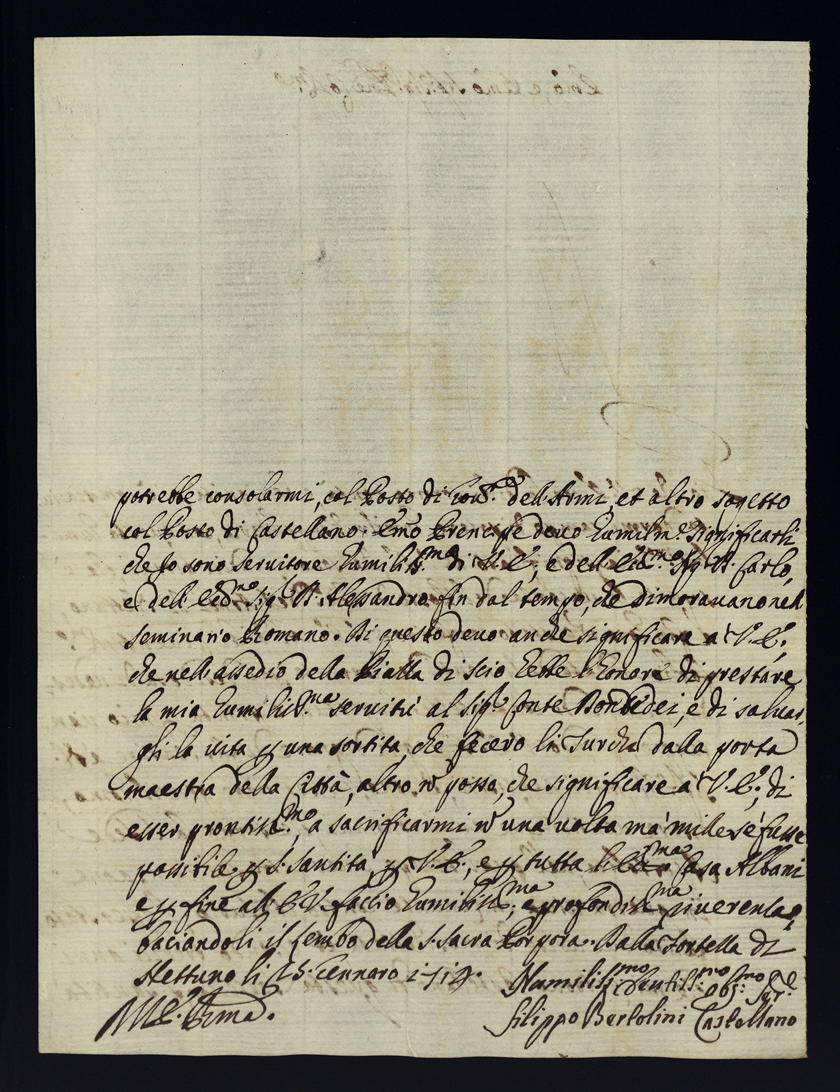 potrebbe consolarmi, col Posto di Gov.re dell'Armi, et altro sogetto
col Posto di Castellano. Em̃o Prencipe devo humilm.e significarli
che Io sono servitore humiliss.mo di V. E., e dell'Ecc.mo Sig. D. Carlo,
e dell'Ecc.mo Sig.r D. Alessandro fin dal tempo, che dimoravano nel
seminario Romano. Di questo devo anche significare a V. E.,
che nell'assedio della Piazza di Scio hebbe l'honore di prestare
la mia humiliss.ma servitù al Sig.r Conte Bonvidei, e di salvar,
gli la vita p una sortita che fecero li Turchi dalla porta
maestra della Città, altro nō posso, che significare a V. E., di
esser prontiss.mo a sacrificarmi nō una volta mà mille sé fusse
possibile p S. Santità, p V. E., e p tutta l'Ecc.ma Casa Albani
e p fine all' E. V. faccio humiliss.ma, e profondiss.ma riverenza,
baciandoli il lembo della S. Sacra Porpora. Dalla Fortezza di
Nettuno li 25. Gennaro 1719.
Humiliss.mo Devotiss.mo obl.mo Ser.re
Filippo Bertolini Castellano
All' E. Sma.